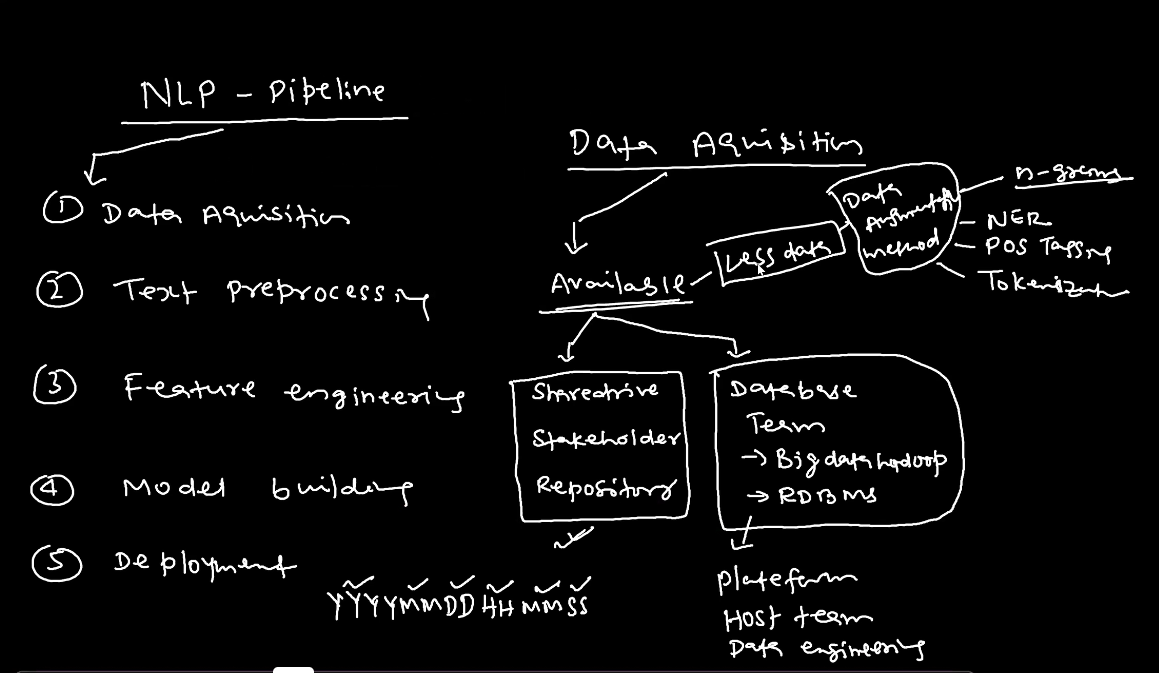 NLP - Pipeline
① Data Aquisition
② Text preprocessing
③ Feature engineering
④ Model building
⑤ Deployment
YYYYMMDDHHMMSS
Data Aquisition
Available
Less data
Data
Augmentation
method
n-grams
NER
POS Tagging
Tokenization
Sharedrive
Stakeholder
Repository
Database
Team
→ Big data hadoop
→ RDBMS
Plateform
Host team
Data engineering